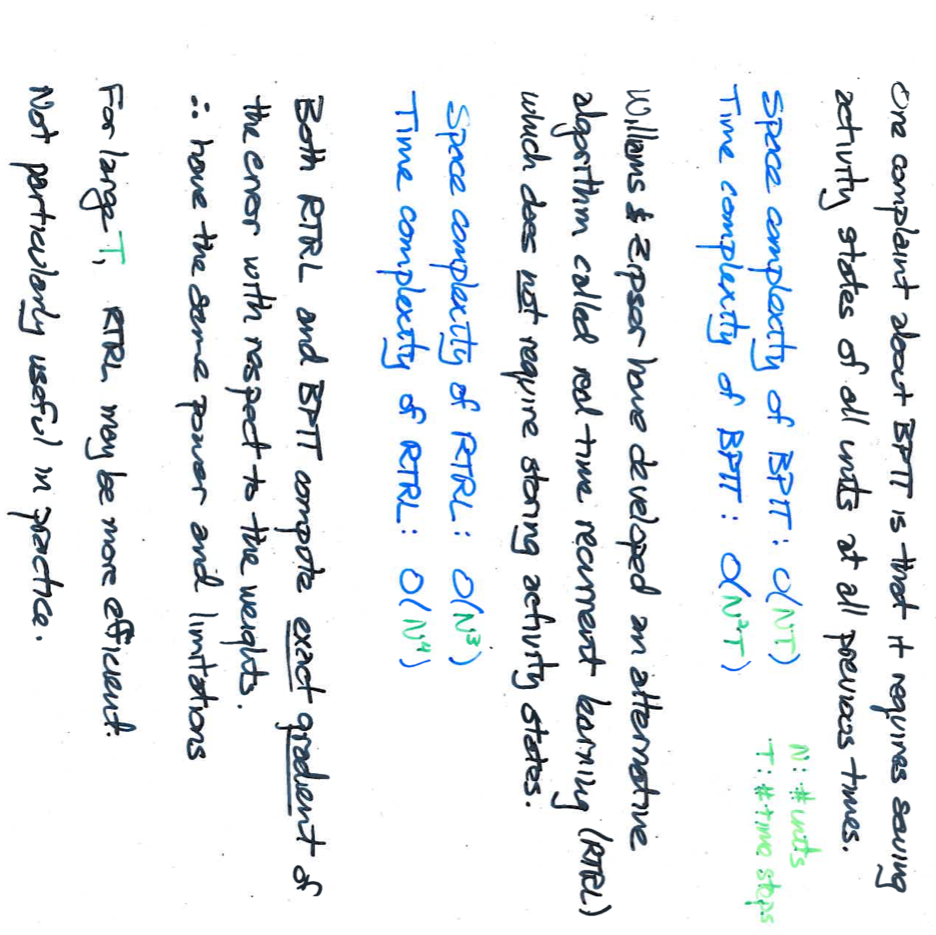 One complaint about BPTT is that it requires saving
activity states of all units at all previous times.
Space complexity of BPTT: O(NT)
Time complexity of BPTT: O(N²T)
N: # units
T: # time steps
Williams & Zipser have developed an alternative
algorithm called real time recurrent learning (RTRL)
which does not require storing activity states.
Space complexity of RTRL: O(N³)
Time complexity of RTRL: O(N⁴)
Both RTRL and BPTT compute exact gradient of
the error with respect to the weights.
∴ have the same power and limitations
For large T, RTRL may be more efficient.
Not particularly useful in practice.